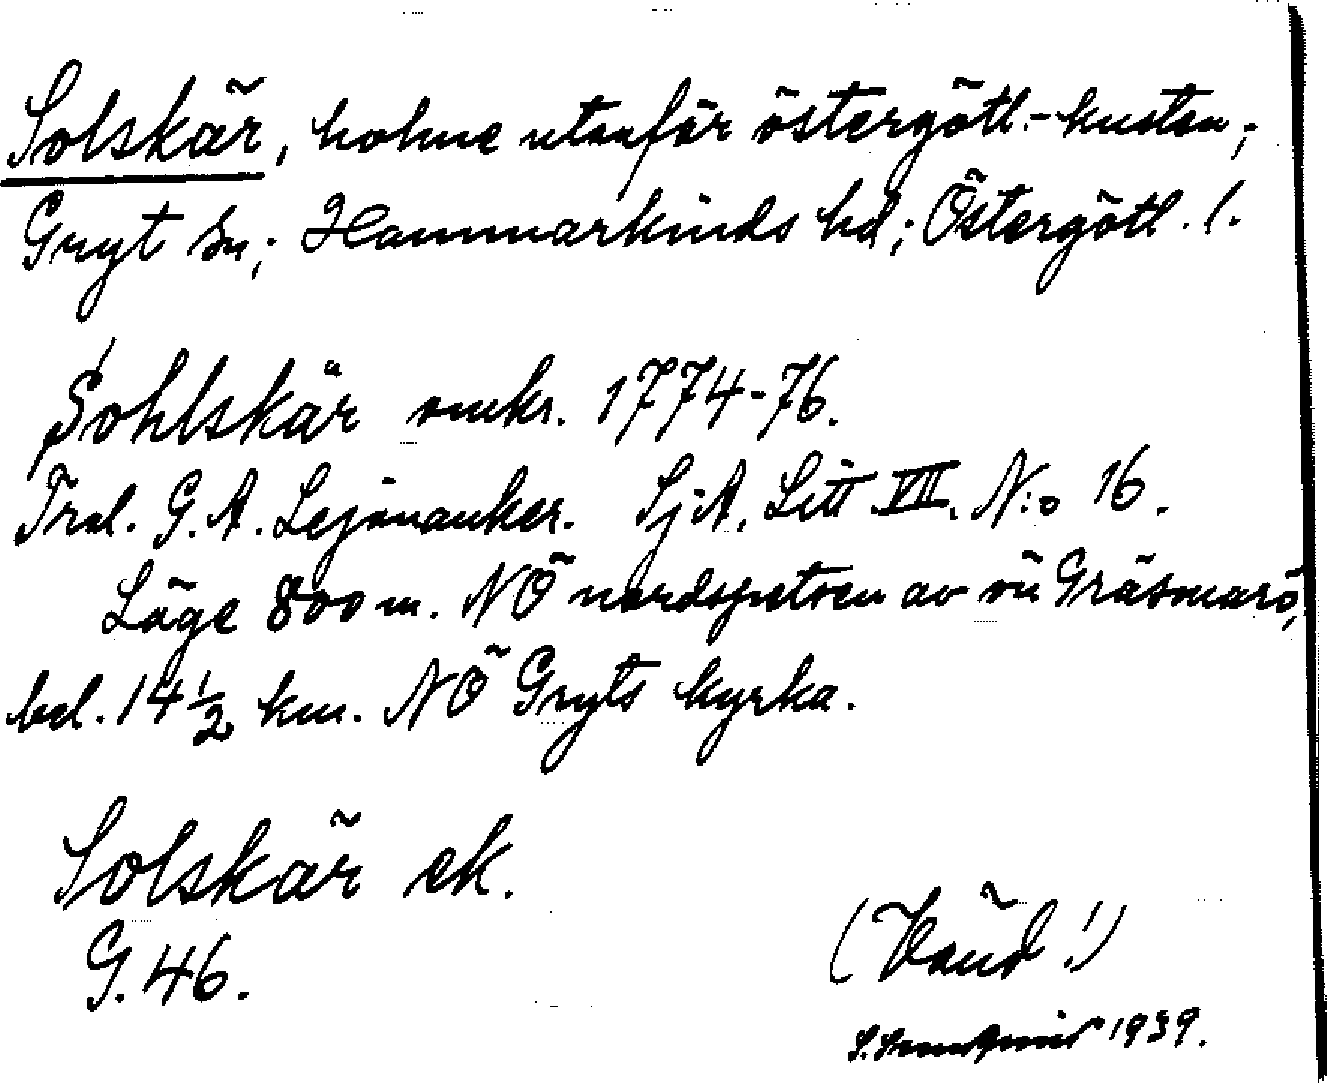 Solskär, holme utanför östergötl.-kusten;
Gryt sn; Hammarkinds hd; Östergötl. l.
Sohlskär omkr. 1774-76.
Trol. G. A. Lejonanker. Sj.A. Litt VII. N:o 16.
Läge 800 m. NÖ nordspetsen av ön Gräsmarö,
bel. 14 1/2 km. NÖ Gryts kyrka.
Solskär ek.
G. 46.
(Vänd!)
1939.